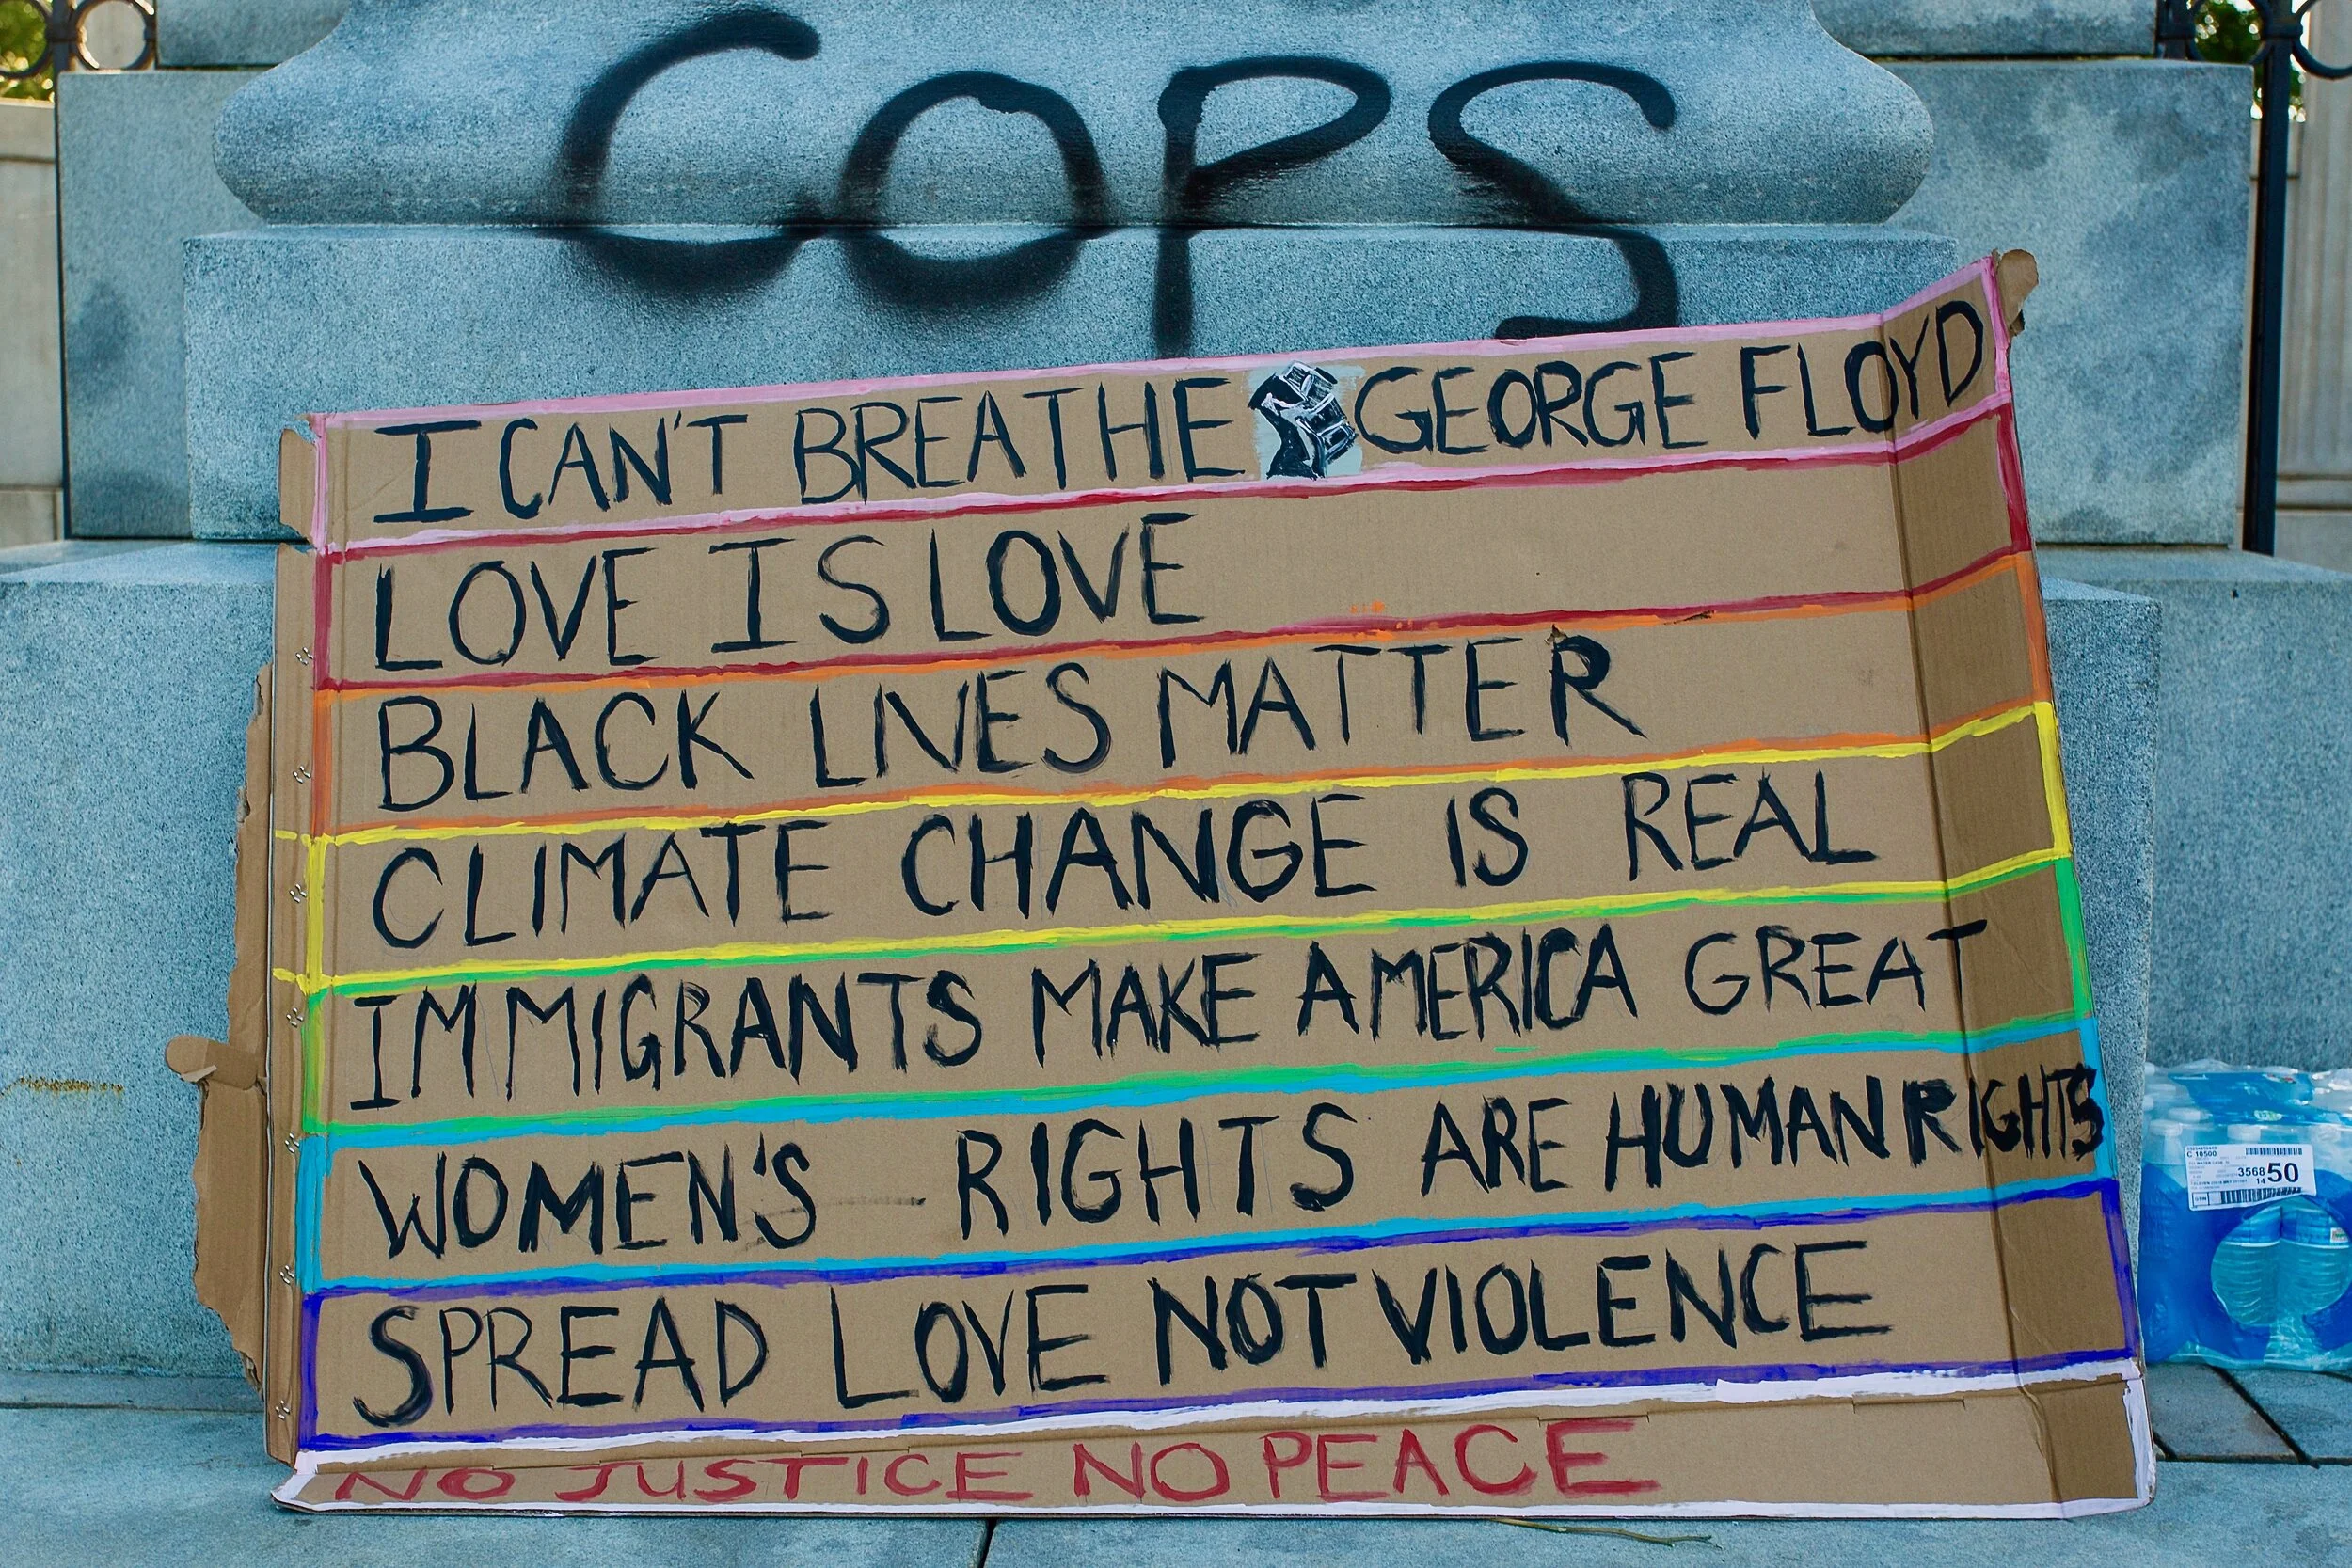 COPS
I CAN'T BREATHE GEORGE FLOYD
LOVE IS LOVE
BLACK LIVES MATTER
CLIMATE CHANGE IS REAL
IMMIGRANTS MAKE AMERICA GREAT
WOMEN'S RIGHTS ARE HUMAN RIGHTS
SPREAD LOVE NOT VIOLENCE
NO JUSTICE NO PEACE
C 10500
3568 50
14